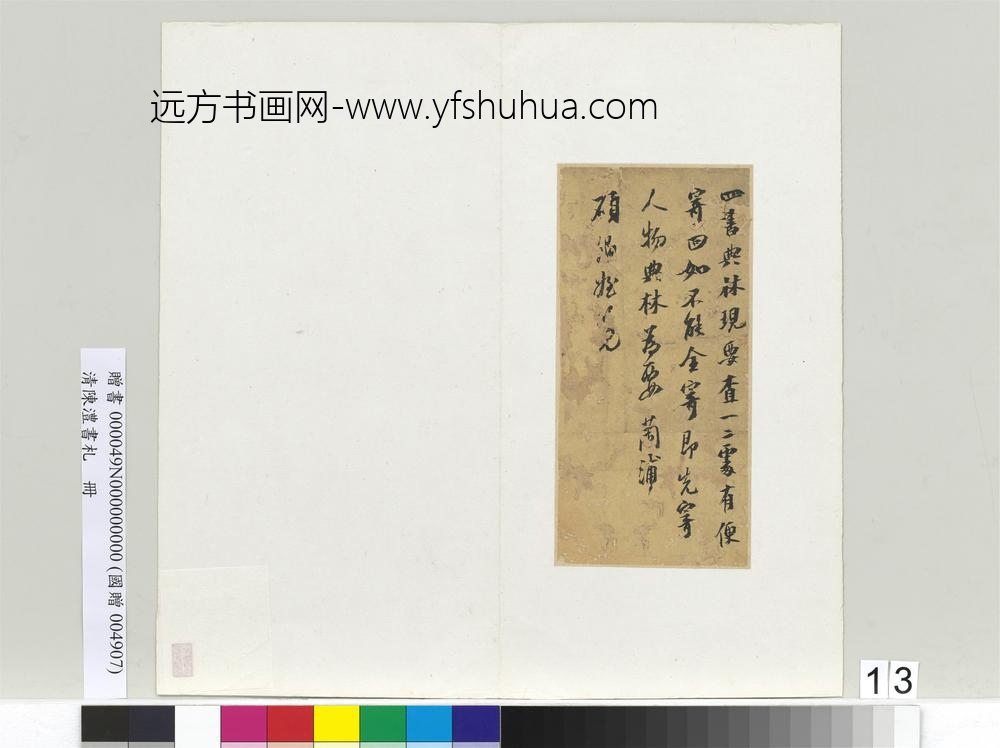 远方书画网-www.yfshuhua.com
四書典林現要查一二處有便
寄回如不能全寄即先寄
人物典林為要 蘭浦
碩 姪 見
贈書 000049N000000000 (國贈 004907)
清陳澧書札 冊
13